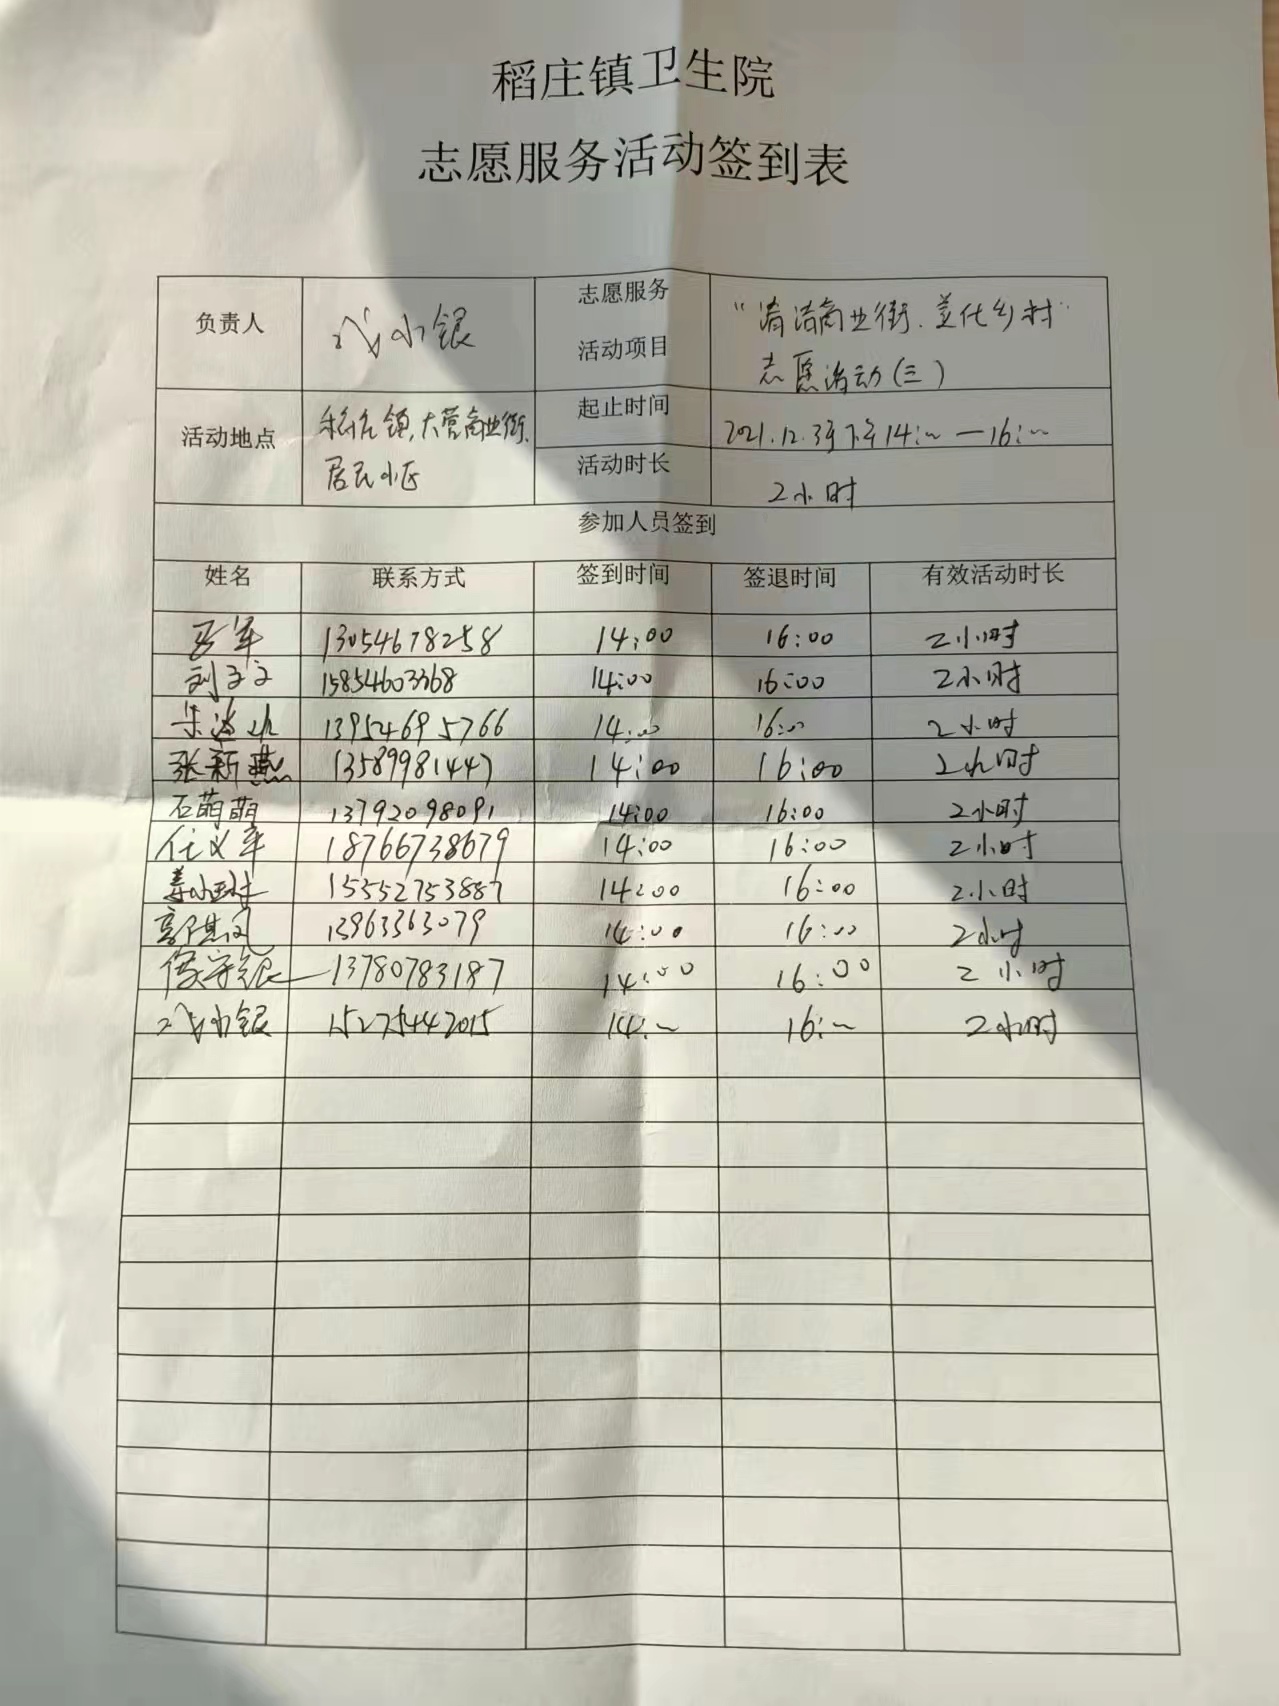 稻庄镇卫生院
志愿服务活动签到表
负责人 小银
志愿服务
活动项目
"清洁商业街、美化乡村"
志愿活动(三)
活动地点
稻庄镇、大营商业街、
居民小区
起止时间 2021.12.3 下午14:~—16:~
活动时长 2小时
参加人员签到
姓名 联系方式 签到时间 签退时间 有效活动时长
军 13054678258 14:00 16:00 2小时
刘文文 15854603368 14:00 16:00 2小时
13954695766 14:00 16:00 2小时
张新燕 13589981447 14:00 16:00 2小时
石萌萌 13792098091 14:00 16:00 2小时
任义军 18766738679 14:00 16:00 2小时
15552753887 14:00 16:00 2小时
郭其凤 13963363079 14:00 16:00 2小时
守银 13780783187 14:00 16:00 2小时
小银 15275442015 14:~ 16:~ 2小时